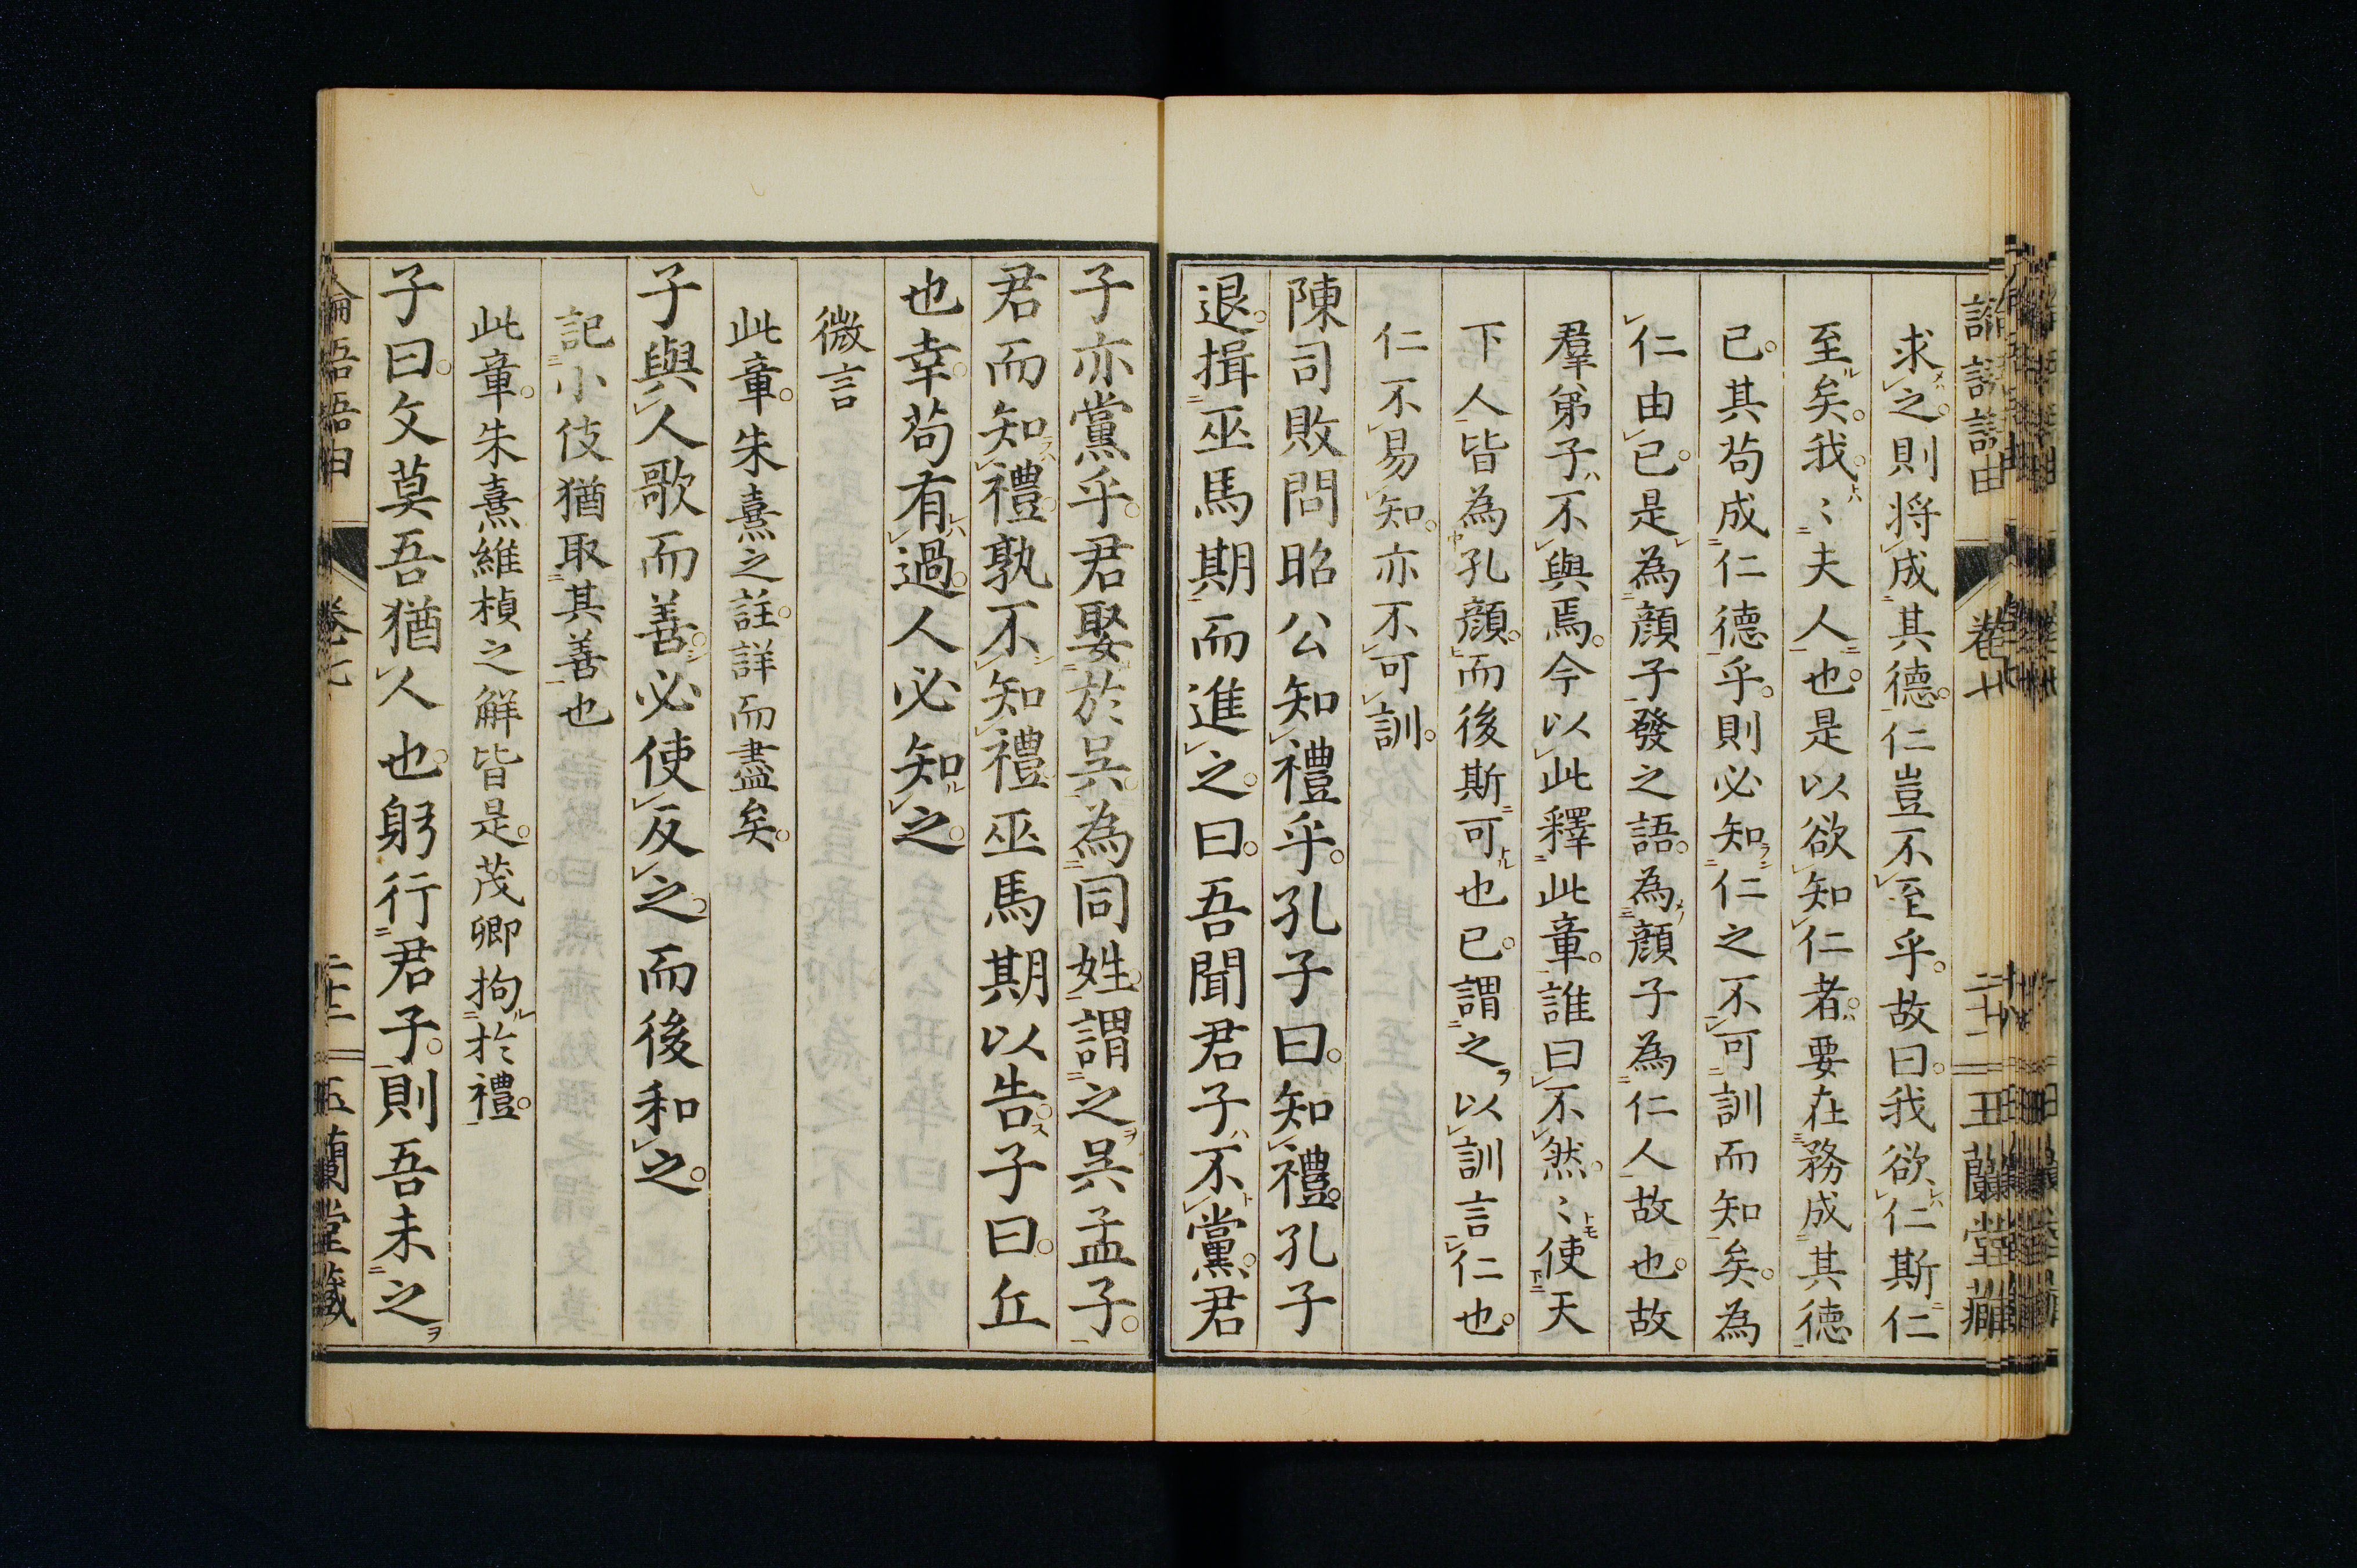 求之。則將成其德。仁豈不至乎。故曰。我欲仁斯仁
至矣。我。我夫人也。是以欲知仁者。要在務成其德
已。其苟成仁德乎。則必知仁之不可訓而知矣。為
仁由已。是為顏子發之語。為顏子為仁人故也。故
羣弟子不與焉。今以此釋此章。誰曰不然。〻使天
下人皆為孔顏。而後斯可也已。謂之以訓言仁也。
仁不易知。亦不可訓。
陳司敗問昭公知禮乎。孔子曰。知禮。孔子
退。揖巫馬期而進之。曰。吾聞君子不黨。君
子亦黨乎。君娶於吳。為同姓。謂之吳孟子。
君而知禮。孰不知禮。巫馬期以告。子曰。丘
也幸。苟有過。人必知之。
微言
此章。朱熹之註。詳而盡矣。
子與人歌而善。必使反之。而後和之。
記小伎猶取其善也
此章。朱熹維楨之解皆是。茂卿拘於禮。
子曰。文莫吾猶人也。躬行君子。則吾未之
論語語由 卷七 二十二 玉蘭堂藏